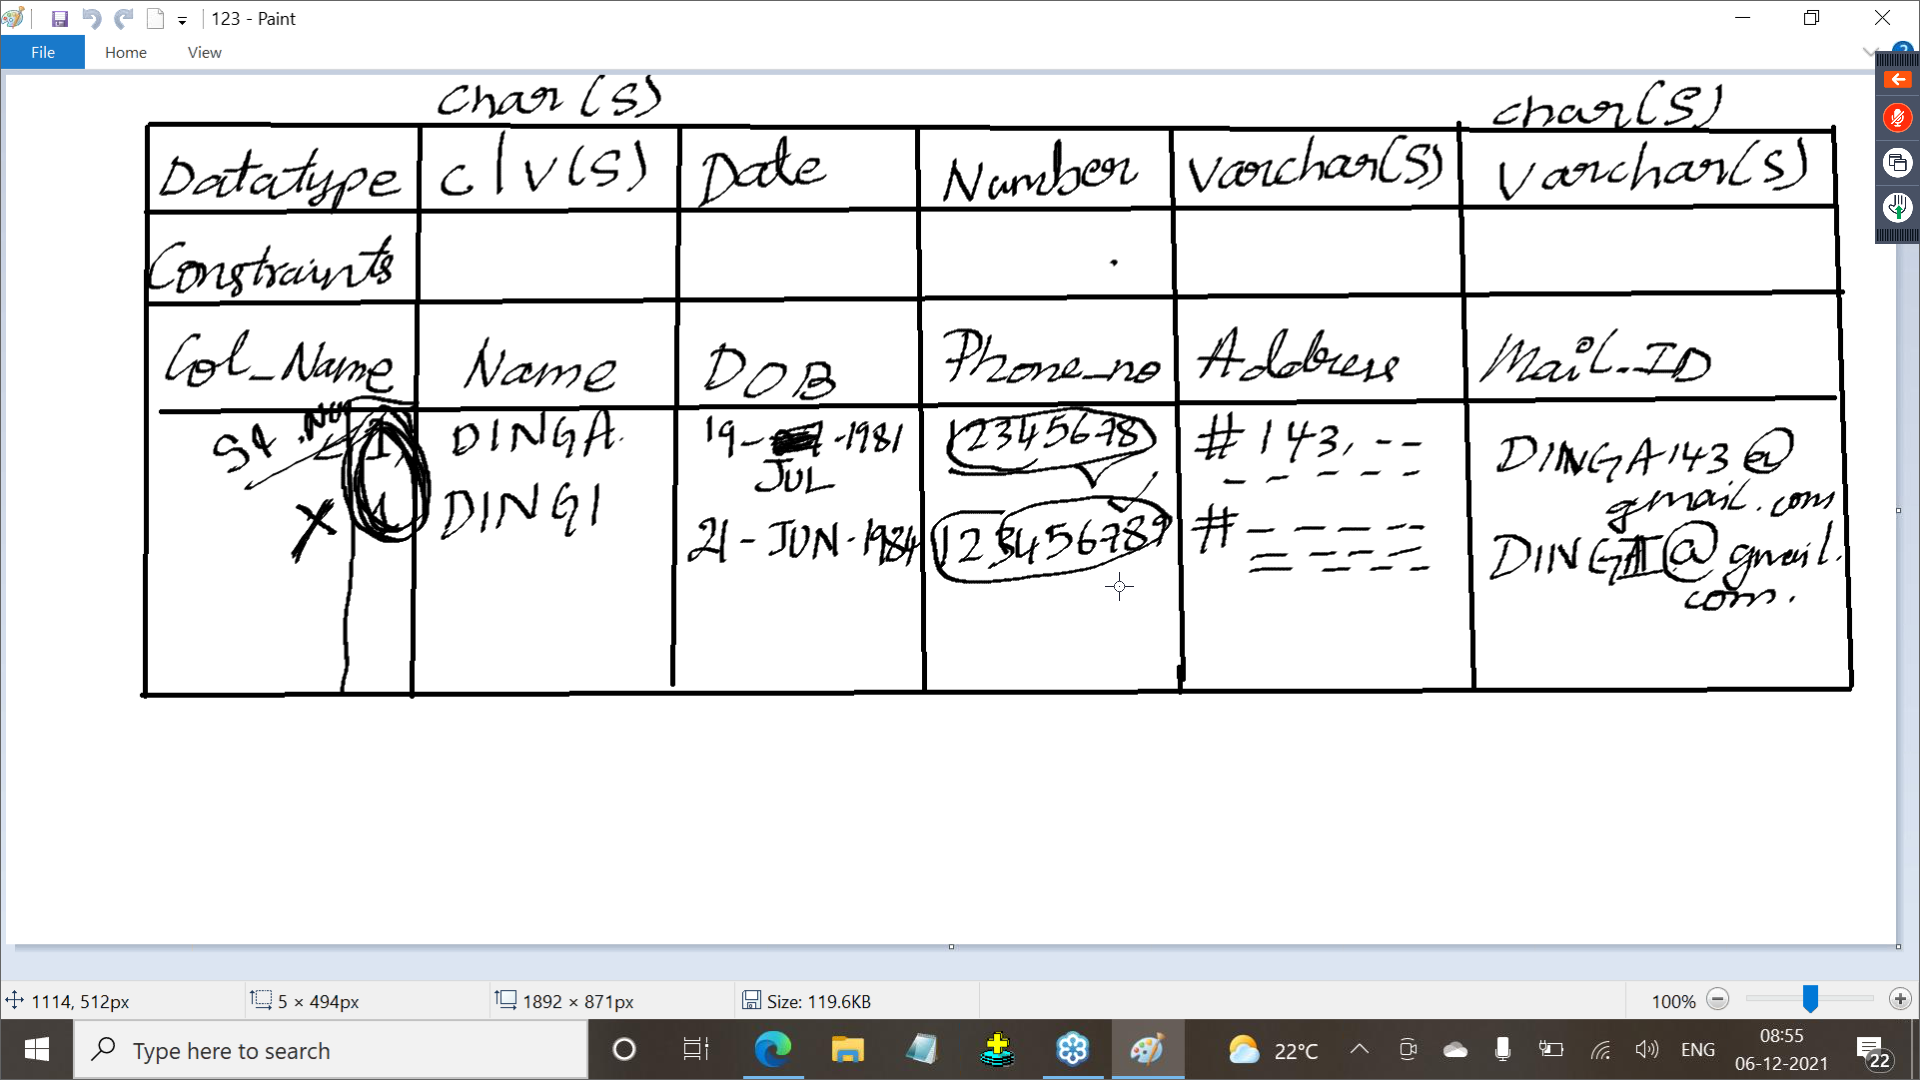 123 - Paint
File Home View
char(S) char(S)
Datatype c/v(S) Date Number Varchar(S) Varchar(S)
Constraints
Col_Name Name DOB Phone_no Address Mail_ID
Sl.No 1 DINGA 19- -1981 12345678 #143, -- DINGA143@
JUL gmail.com
X 1 DINGI 21-JUN-1984 123456789 # ---- DINGI@gmail.
com.
1114, 512px 5 × 494px 1892 × 871px Size: 119.6KB 100%
Type here to search 22°C ENG 08:55
06-12-2021 22